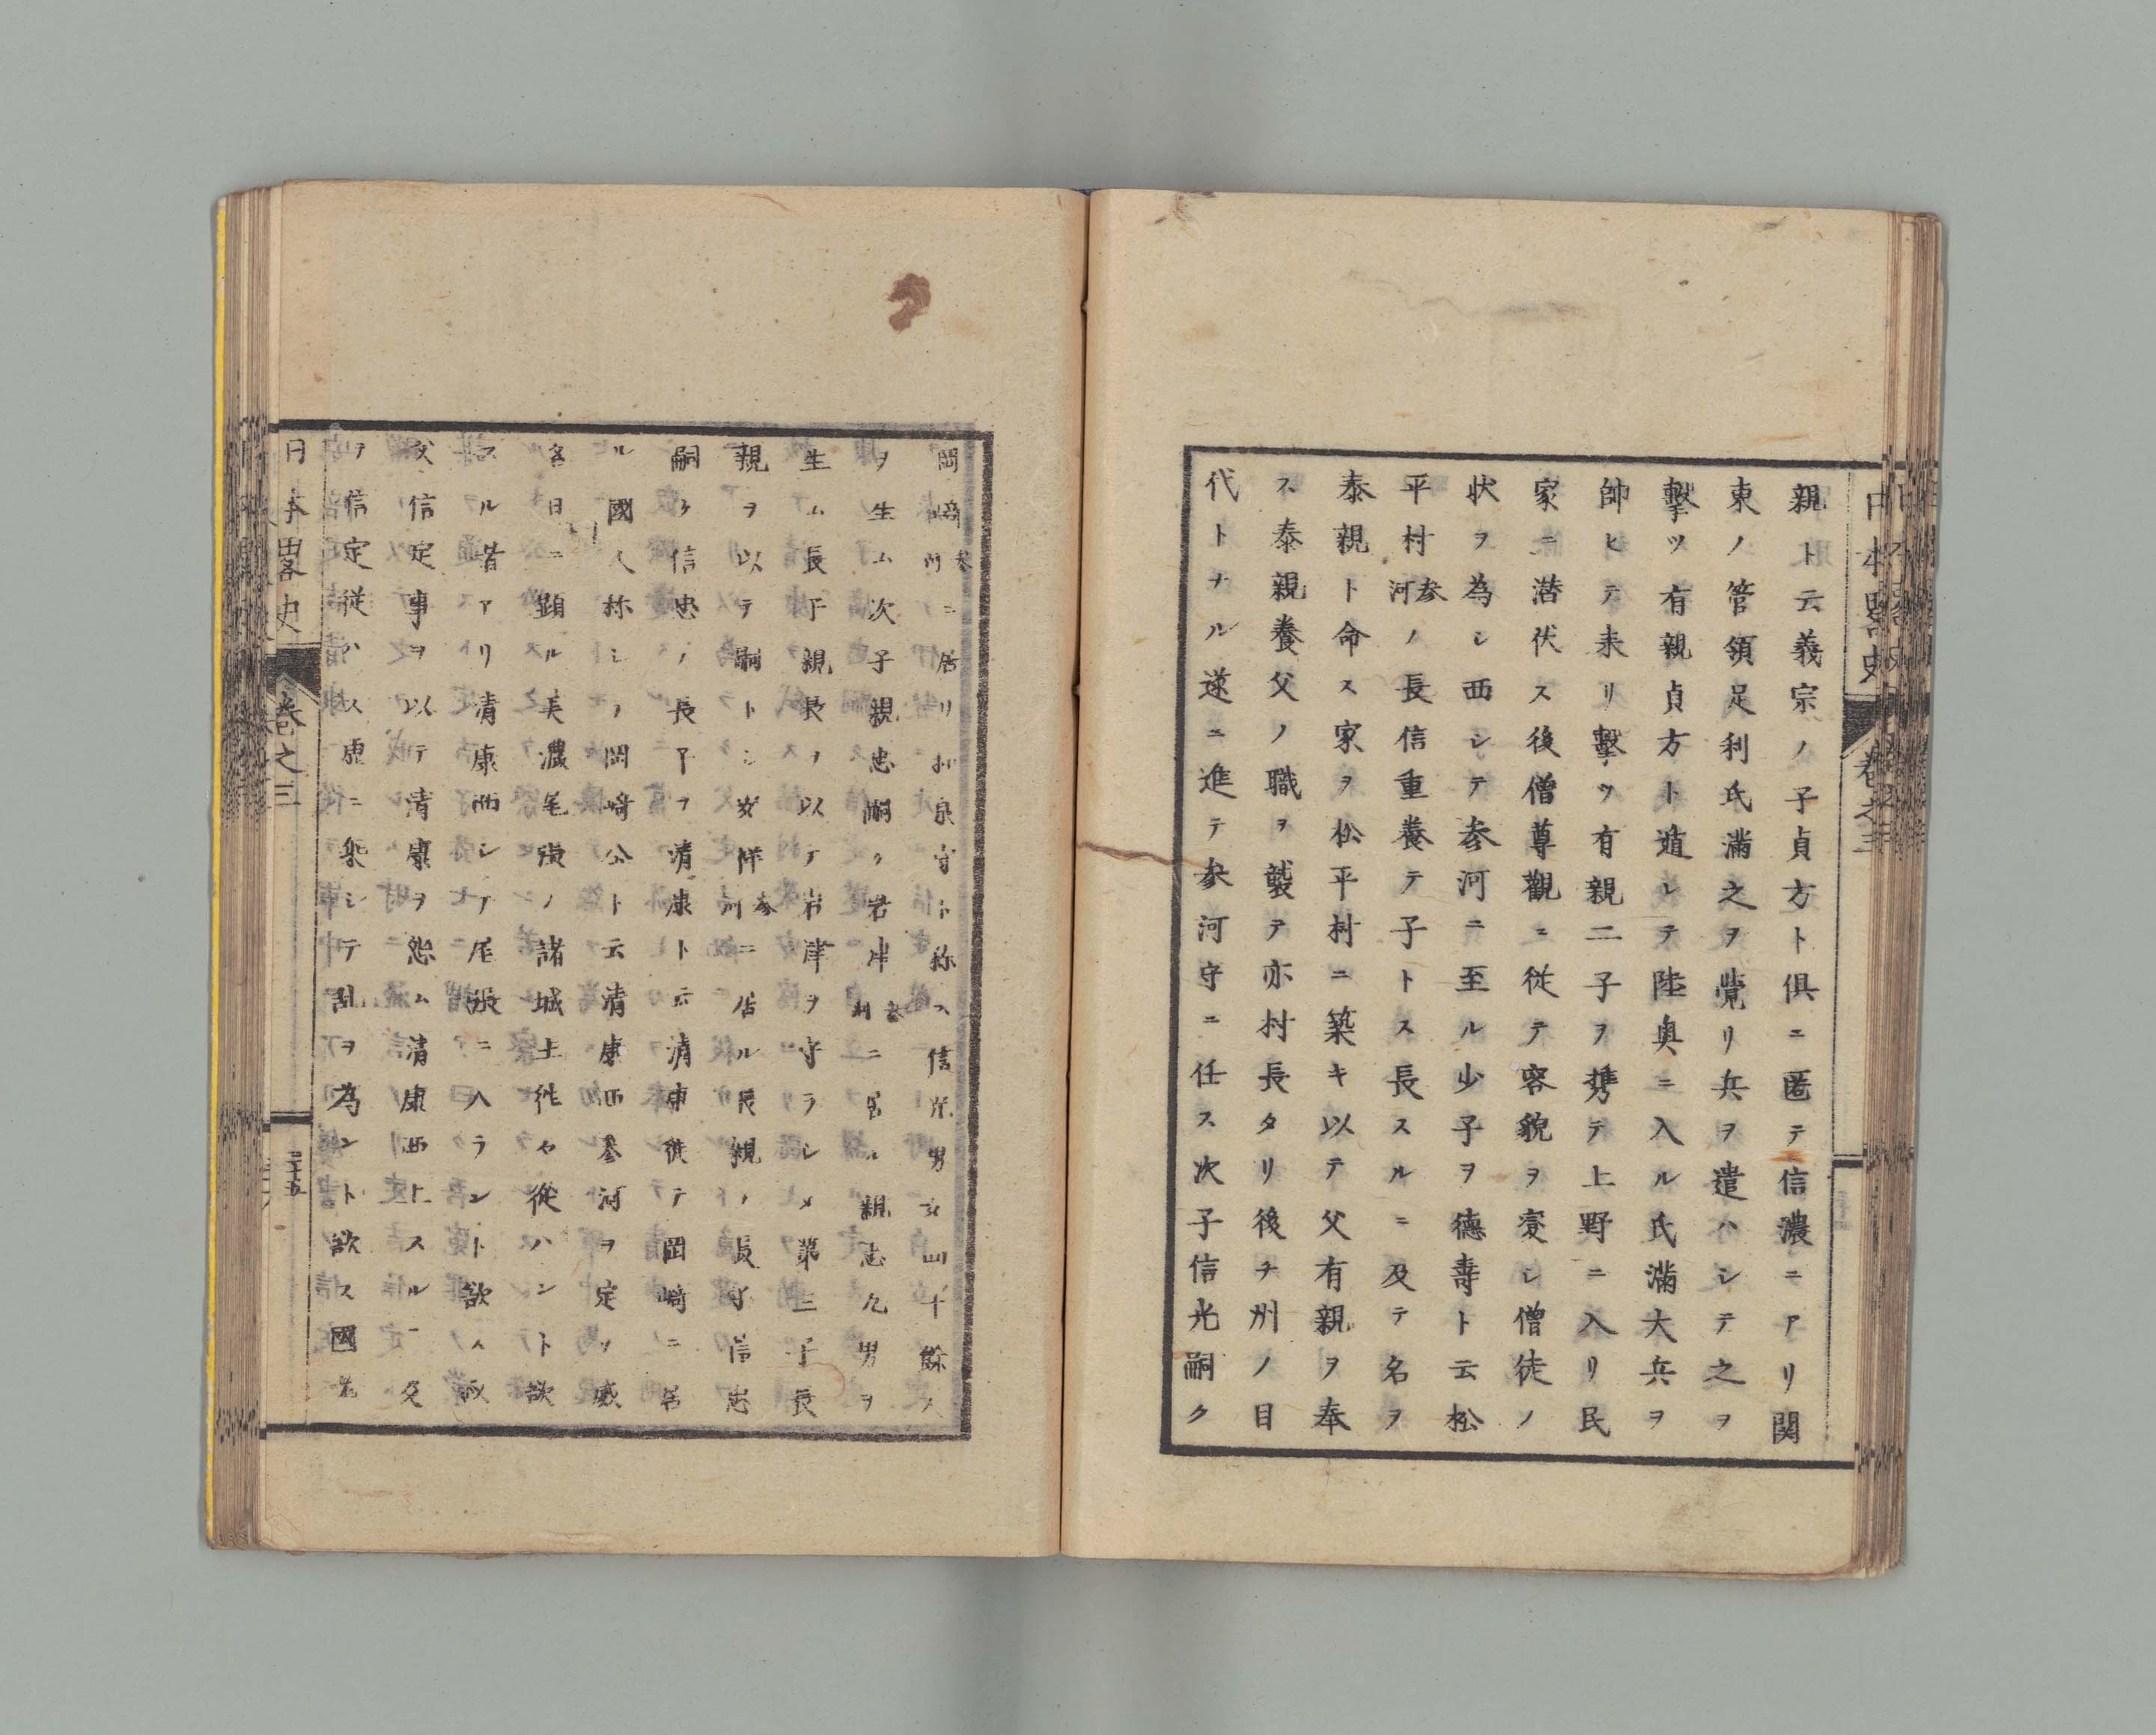 日本畧史 卷之三
親ト云義宗ノ子貞方ト俱ニ匿テ信濃ニアリ関
東ノ管領足利氏滿之ヲ覺リ兵ヲ遣ハシテ之ヲ
擊ツ有親貞方ト遁レテ陸奥ニ入ル氏滿大兵ヲ
帥ヒテ来リ擊ツ有親二子ヲ携テ上野ニ入リ民
家ニ潜伏ス後僧尊觀ニ従テ容貌ヲ変シ僧徒ノ
状ヲ為シ西シテ参河ニ至ル少子ヲ德壽ト云松
平村参河ノ長信重養テ子トス長スルニ及テ名ヲ
泰親ト命ス家ヲ松平村ニ築キ以テ父有親ヲ奉
ス泰親養父ノ職ヲ襲テ亦村長タリ後チ州ノ目
代トナル遂ニ進テ参河守ニ任ス次子信光嗣ク
岡﨑参州ニ居リ和泉守ト称ス信光男女四十餘人
ヲ生ム次子親忠嗣ク岩津参州ニ居ル親忠九男ヲ
生ム長子親長ヲ以テ岩津ヲ守ラシメ第三子長
親ヲ以テ嗣トシ安祥参州ニ居ル長親ノ長子信忠
嗣ク信忠ノ長子ヲ清康ト云清康徙テ岡﨑ニ居
ル國人称シテ岡﨑公ト云清康西参河ヲ定ツ威
名日ニ顕ル美濃尾張ノ諸城主徃々従ハント欲
スル者アリ清康西シテ尾張ニ入ラント欲ス叔
父信定事ヲ以テ清康ヲ怨ム清康西上スルニ及
ヲ信定従ハス虚ニ乗シテ乱ヲ為ント欲ス國老
日本畧史 卷之三 三十五